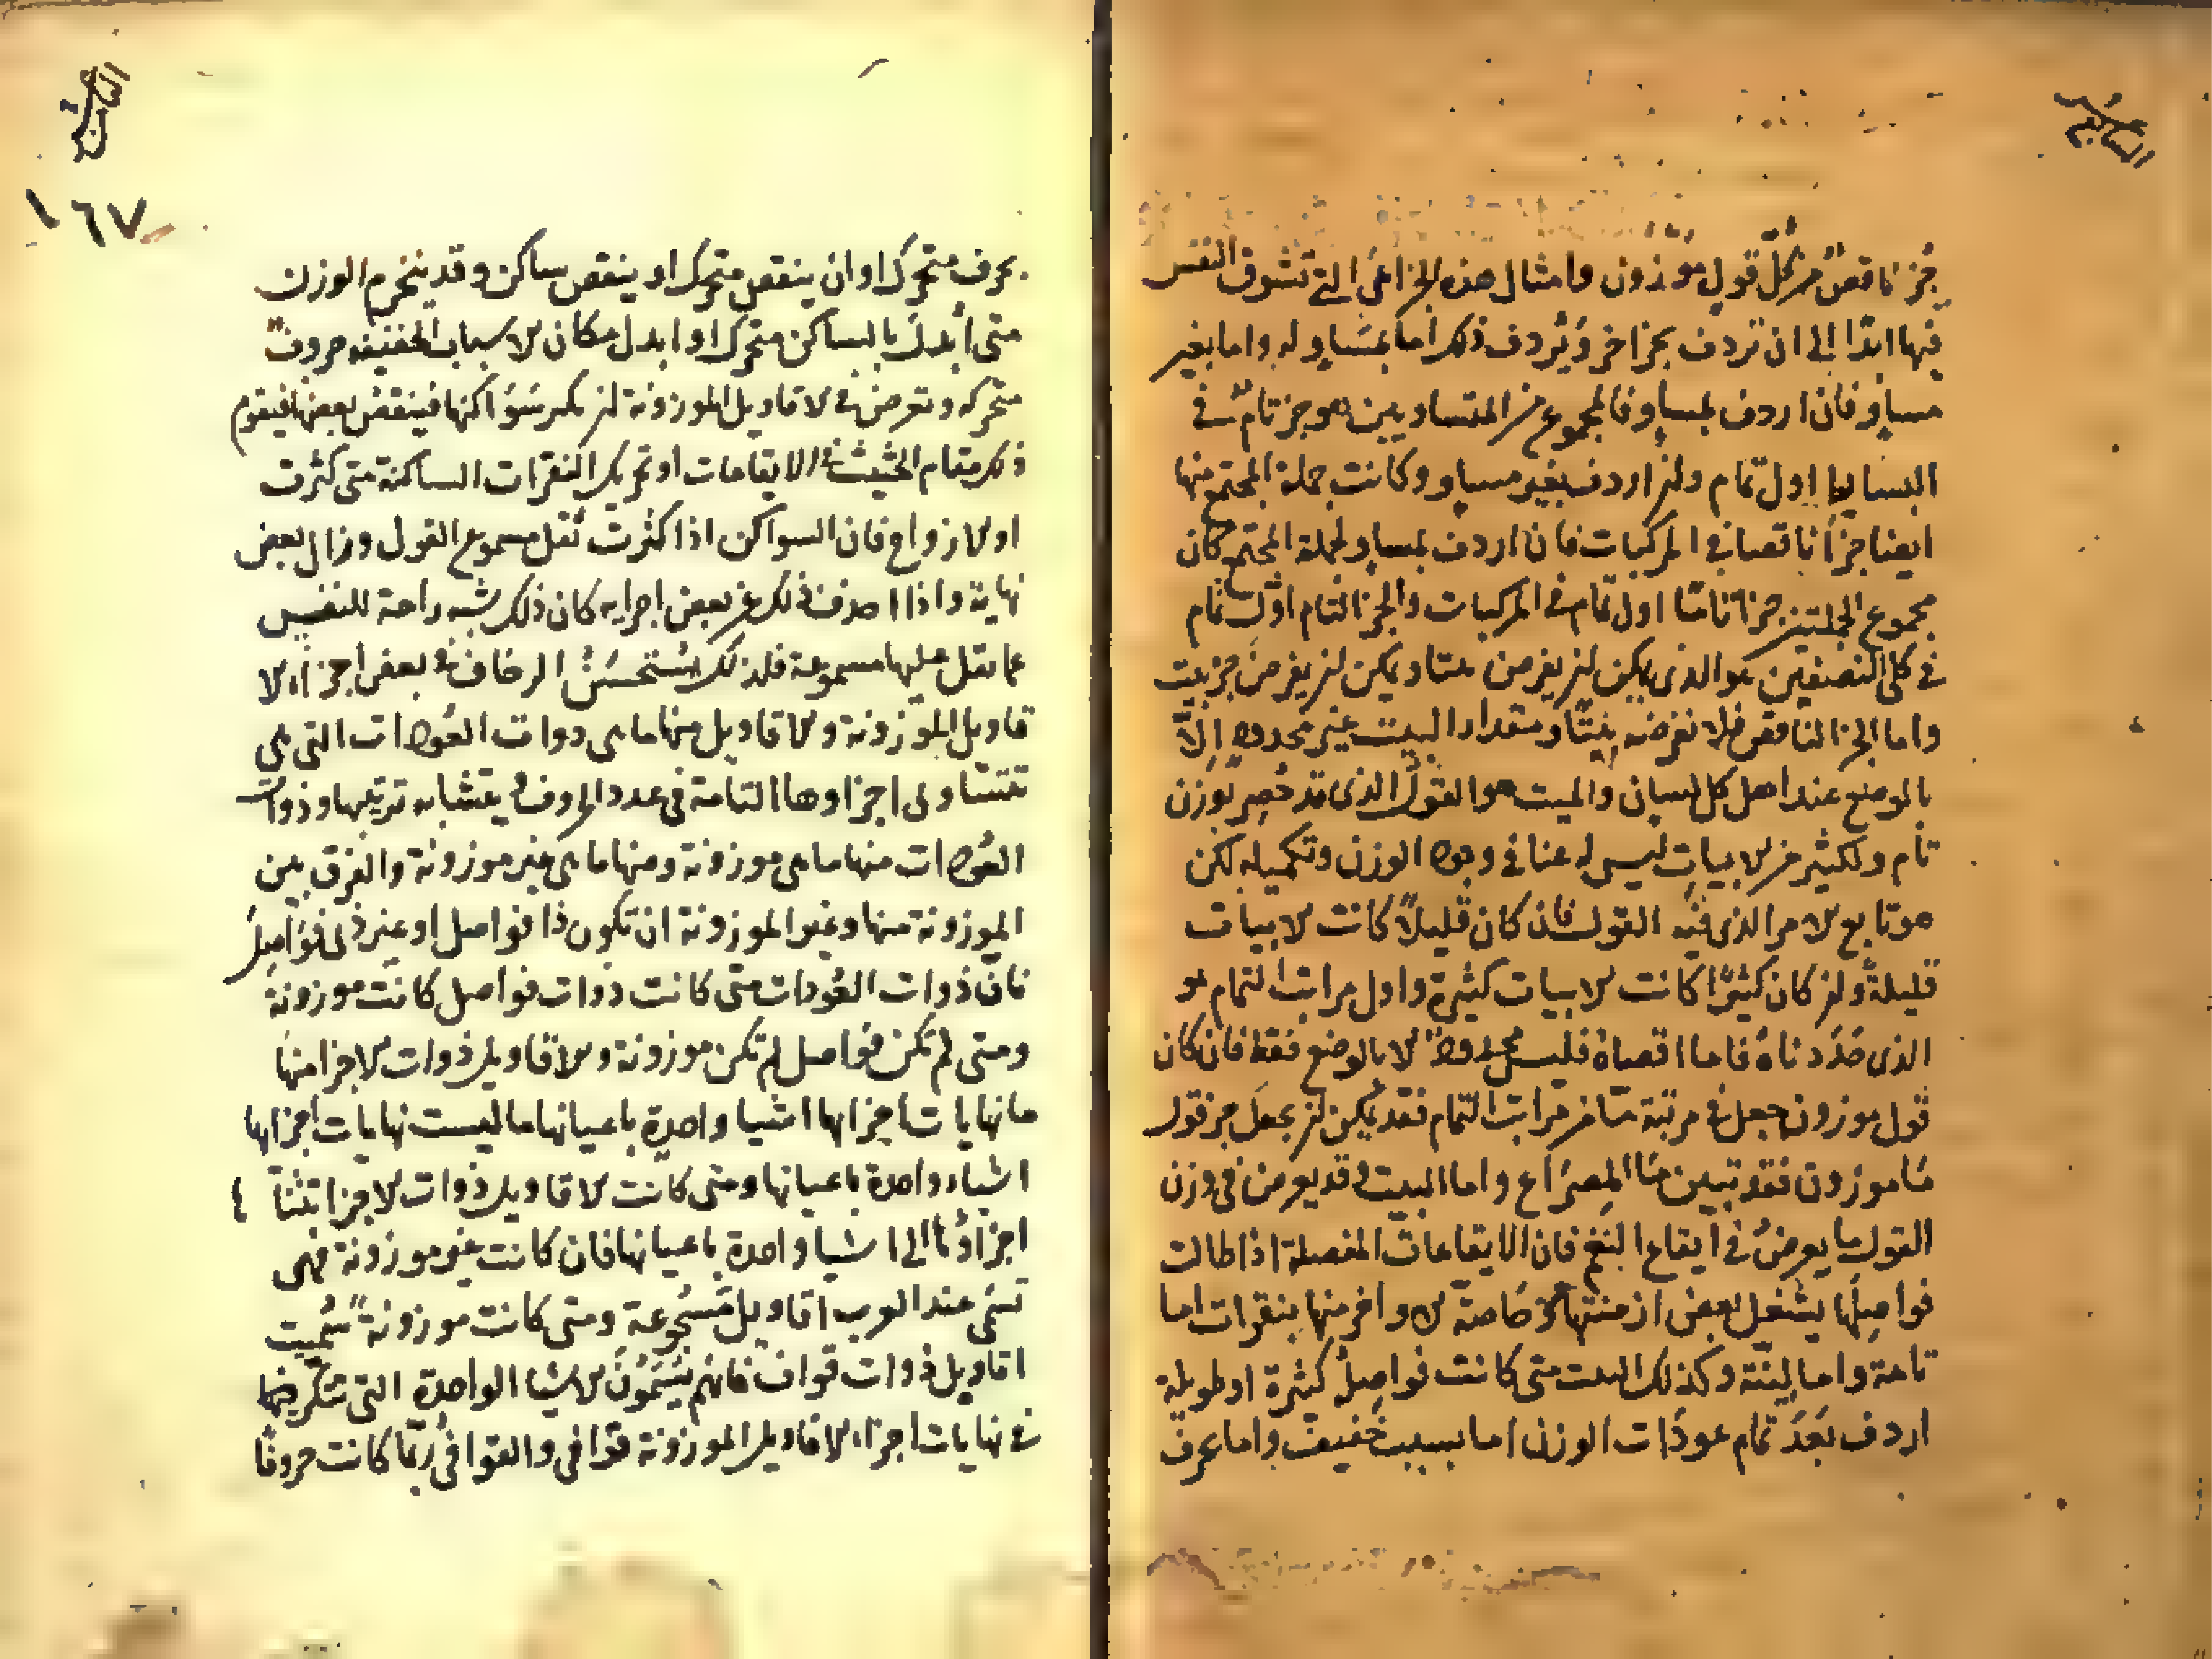 السابع عشر
جز ناقص من كل قول موزون وامثال هذه الاجزا هي التي تشوق النفس
فيها ابدا الى ان تردف بجز اخر وتردف ذلك اما بمساو له واما بغير
مساو فان اردف بمساو فالمجموع من المتساويين هو جز تام في
البسايط اول تمام وان اردف بغير مساو وكانت جملة المجتمع منها
ايضا جزأ ناقصا في المركبات فان اردف بمساو لجملة المجتمع كان
مجموع الجملتين جزا تاما اول تمام في المركبات والجز التام اول تمام
في كلى الصنفين هو الذى يمكن ان يفرض بيتا ويمكن ان يفرض جز بيت
واما الجز الناقص فلا نفرضه بيتا ومقدار البيت غير محدود الا
بالوضع عند اهل كل لسان والبيت هو القول الذى قد حصر بوزن
تام ولكثير من الابيات ليس له غنا في وجود الوزن وتكميله لكن
هو تابع للامر الذى فيه القول فان كان قليلا كانت الابيات
قليلة وان كان كثيرا كانت الابيات كثيرة واول مراتب التمام هو
الذى حددناه فاما اقصاه فليس محدودا الا بالوضع فقط فان كان
قول موزون جعل في مرتبة ما من مراتب التمام فقد يمكن ان يجعل جز قول
ما موزون فقد تبين ما المصراع واما البيت وقد يعرض في وزن
القول ما يعرض في ايقاع النغم فان الايقاعات المفصلة اذا طالت
فواصلها يشغل بعض ازمنتها وخاصة الاواخر منها بنقرات اما
تامة واما لينة وكذلك البيت متى كانت فواصل كثيرة او طويلة
اردف بعد تمام عودات الوزن اما بسبب خفيف واما بحرف
١٦٧
بحرف متحرك او ان ينقص متحرك او ينقص ساكن وقد ينخرم الوزن
متى أبدل بالساكن متحرك او ابدل مكان الاسباب الخفيفه حروف
متحركه وتعرض في الاقاويل الموزونة ان تكسر سواكنها فينقص بعضها فيقوم
ذلك مقام الحثيث في الايقاعات او تحريك النقرات الساكنة متى كثرت
او الازواج فان السواكن اذا كثرت ثقل مسموع القول وزال بعض
نهاية واذا احذف ذلك عن بعض اجزايه كان ذلك شبه راحة للنفس
مما ثقل عليها مسموعة فلذلك يستحسن الزحاف في بعض اجزاء الا
قاويل الموزونة والاقاويل منها ما هى ذوات العودات التى هى
تتساوى اجزاوها التامة فى عدد الحروف ويتشابه ترتيبها وذوات
العودات منها ما هى موزونة ومنها ما هى غير موزونة والفرق بين
الموزونة منها وغير الموزونة ان تكون ذا فواصل او غير ذى فواصل
فان ذوات العودات متى كانت ذوات فواصل كانت موزونة
ومتى لم تكن فواصل لم تكن موزونة والاقاويل ذوات الاجزا منها
ما نهايات اجزايها اشيا واحدة باعيانها ما ليست نهايات اجزايها
اشياء واحدة باعيانها ومتى كانت الاقاويل ذوات الاجزا تتنا
اجزاوها الى اشيا واحدة باعيانها فان كانت غير موزونة فهى
تسمى عند العرب اقاويل مسجوعة ومتى كانت موزونة سميت
اقاويل ذوات قواف فانهم يسمون الاشيا الواحدة التى
في نهايات اجزاء الاقاويل الموزونة قوافى والقوافى ربما كانت حروفا